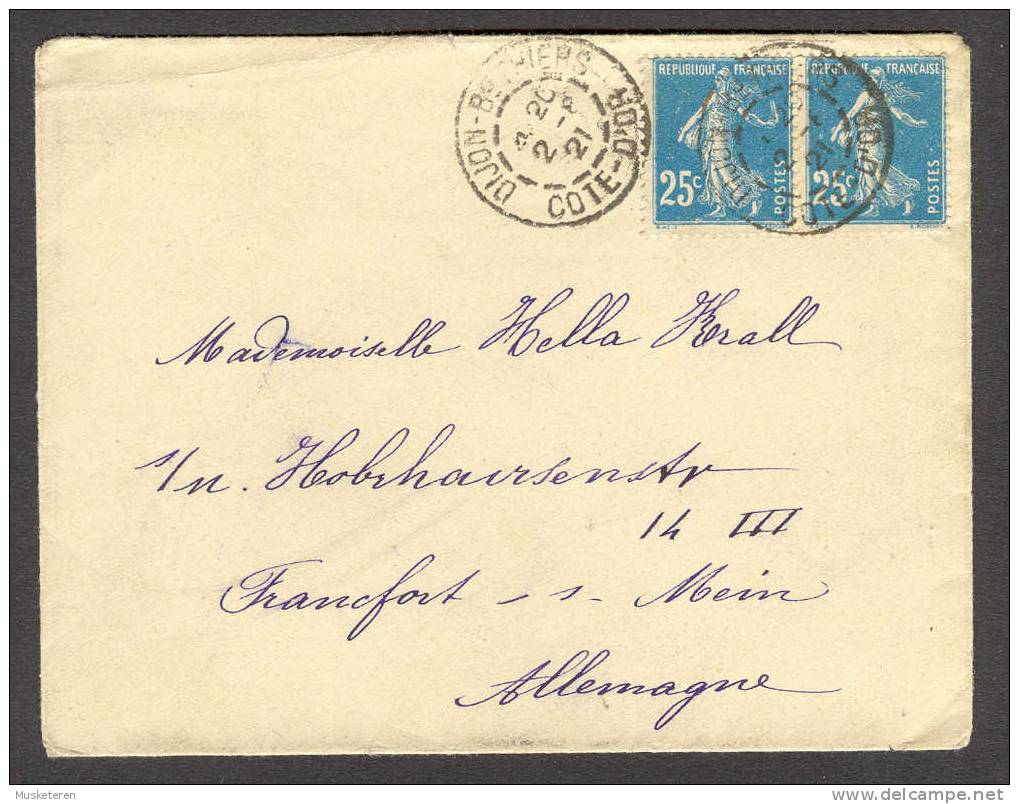 DIJON-Bd THIERS-
COTE-D'OR
20
2 - 2
21
REPUBLIQUE FRANÇAISE
25c
POSTES
REPUBLIQUE FRANÇAISE
25c
POSTES
COTE D'OR
21
Mademoiselle Hella Krall
s/n. Hobrhairsenstr
14 III
Francfort - s - Mein
Allemagne
Musketeren
delcampe.net